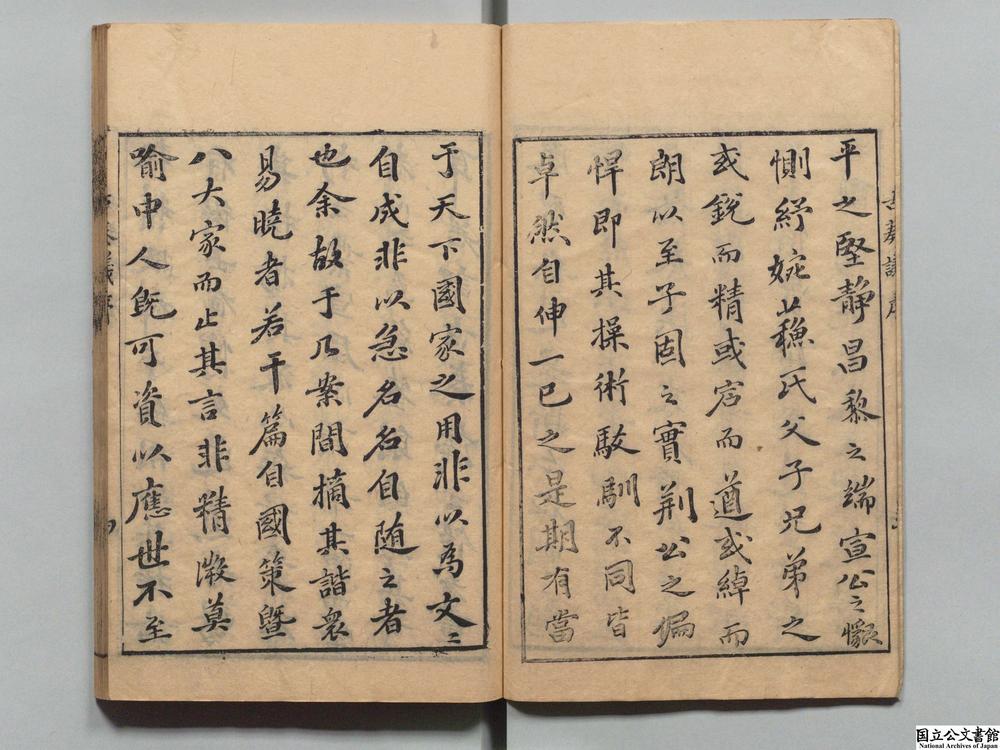 平之堅靜昌黎之端宣公之懇
惻紓婉蘓氏父子兄弟之
或銳而精或宕而遒或綽而
朗以至子固之實荆公之偏
悍即其操術駁馴不同皆
卓然自伸一已之是期有當
于天下國家之用非以為文二
自成非以急名名自随之者
也余故于乃案間摘其諧衆
易曉者若干篇自國策曁
八大家而止其言非精㣲莫
喻中人既可資以應世不至
国立公文書館
National Archives of Japan